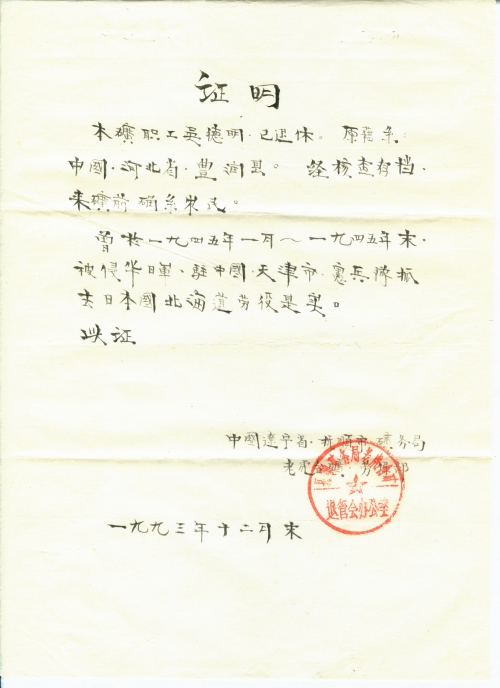 证明
本礦职工吴德明·已退休。 原籍系:
中國·河北省·豐润县。 经核查存档·
来礦前确系农民。
曾於一九四五年一月~一九四五年末·
被侵华日軍·駐中國·天津市·憲兵隊抓
去日本國北海道劳役是实。
此证
中國遼宁省·抚順市礦务局
老虎台礦·劳
退管会办公室
一九九三年十二月末